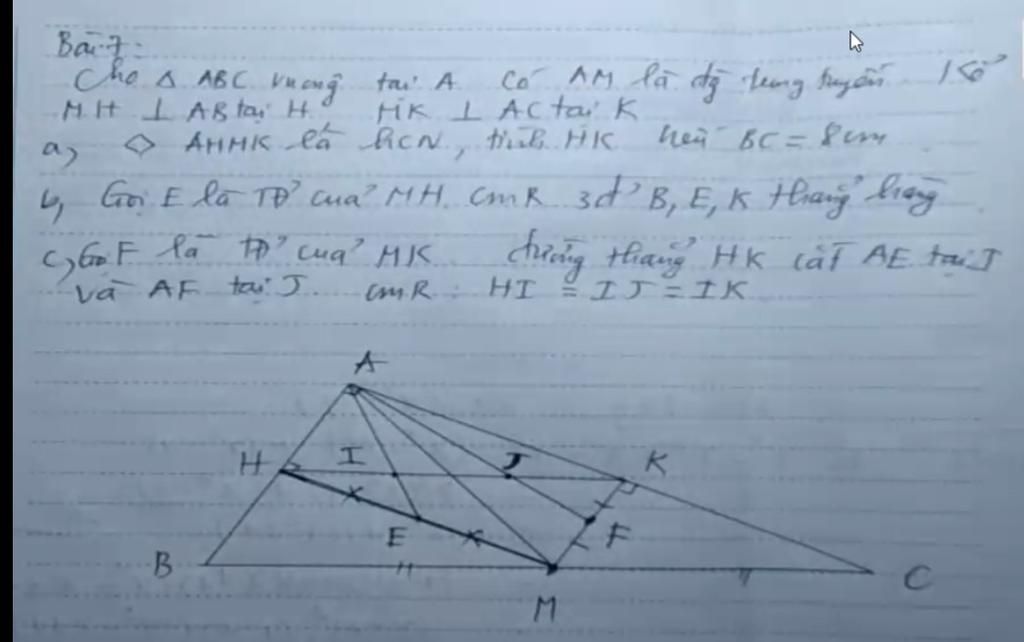 Bài 7:
Cho Δ ABC vuông tại A có AM là đg trung tuyến Kẻ
MH ⊥ AB tại H. MK ⊥ AC tại K
a, ◇ AHMK là hCN, tính HK nếu BC = 8cm
b, Gọi E là TĐ của MH. CmR 3đ B, E, K thẳng hàng
c, Gọi F là TĐ của MK đường thẳng HK cắt AE tại I
và AF tại J. cmR: HI = IJ = IK
A
H I J K
E F
B C
M